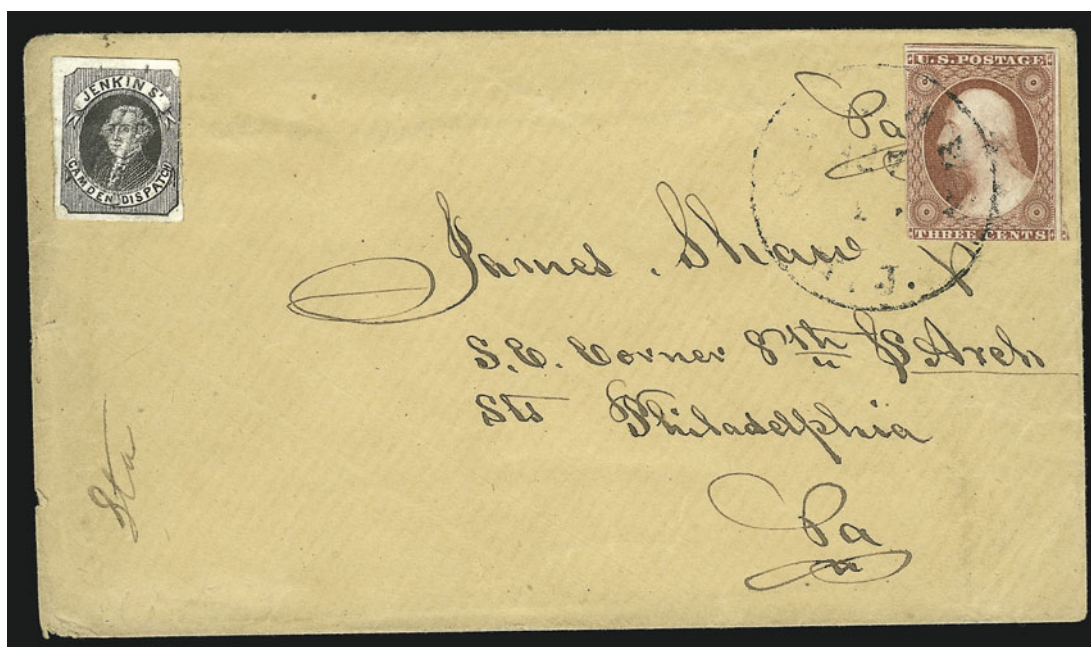 JENKINS'
CAMDEN DISPATCH
U.S. POSTAGE
THREE CENTS
Pa
N.J.
James Shaw
S.E. Corner 8th & Arch
Sts Philadelphia
Pa